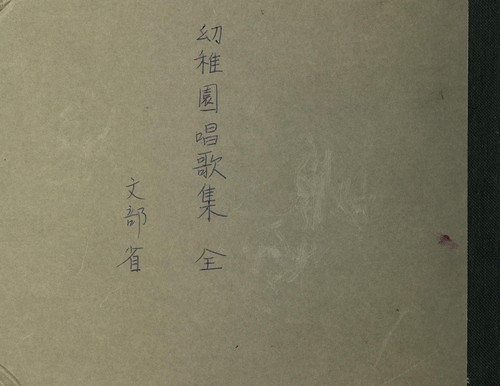 幼稚園唱歌集 全
文部省